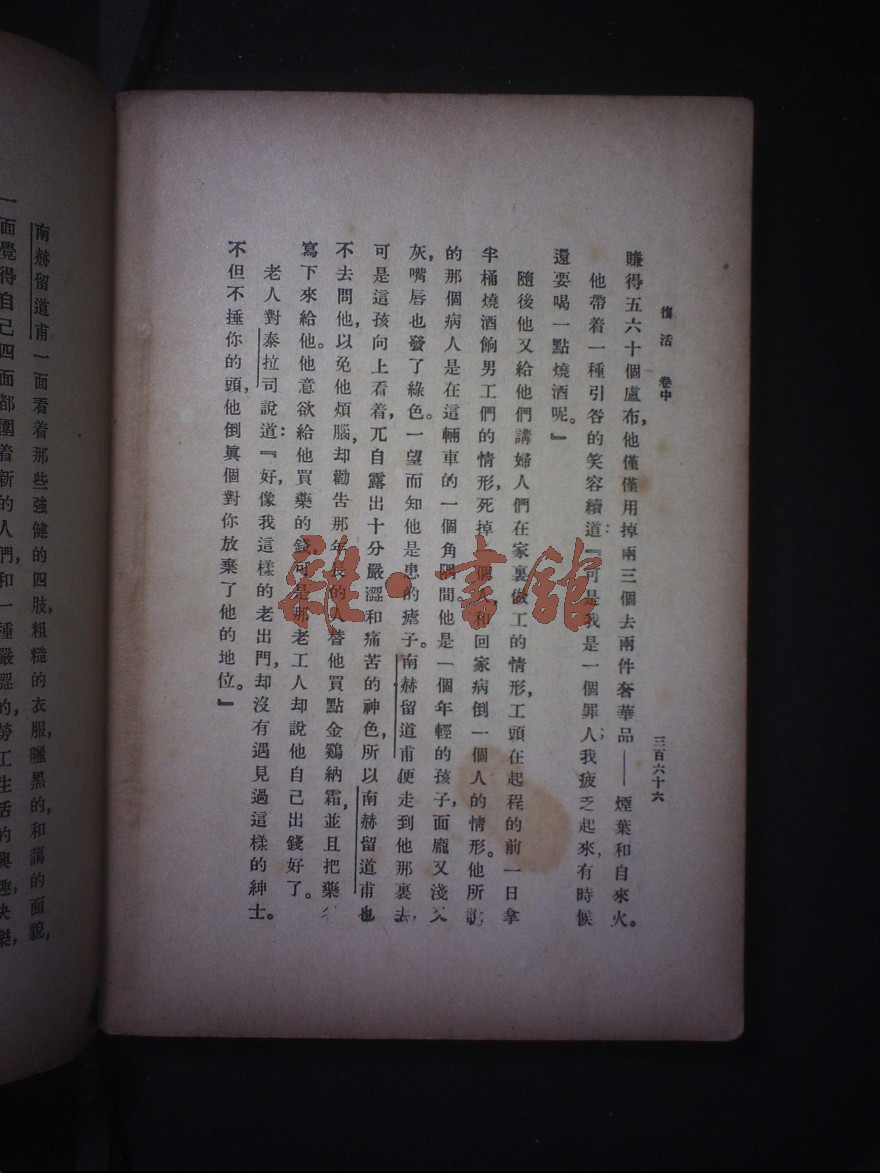 復活 卷中
三百六十六
賺得五六十個盧布，他僅僅用掉兩三個去兩件奢華品——煙葉和自來火。
他帶着一種引咎的笑容續道：『可是我是一個罪人；我疲乏起來，有時候
還要喝一點燒酒呢。』
隨後他又給他們講婦人們在家裏做工的情形，工頭在起程的前一日拿
半桶燒酒餉男工們的情形，死掉一個人和回家病倒一個人的情形。他所說
的那個病人是在這輛車的一個角隅間。他是一個年輕的孩子，面龐又淺又
灰，嘴唇也發了綠色。一望而知他是患的瘧子。南赫留道甫便走到他那裏去，
可是這孩向上看着，兀自露出十分嚴澀和痛苦的神色，所以南赫留道甫也
不去問他，以免他煩腦，却勸告那年長的人替他買點金鷄納霜，並且把藥
寫下來給他。他意欲給他買藥的錢，可是那老工人却說他自己出錢好了。
老人對泰拉司說道：『好像我這樣的老出門，却沒有遇見過這樣的紳士。
不但不捶你的頭，他倒眞個對你放棄了他的地位。』
南赫留道甫一面看着那些強健的四肢，粗糙的衣服，曬黑的，和藹的面貌，
一面覺得自己四面都圍着新的人們，和一種嚴澀的，勞工生活的興趣，快樂，
雜·書館